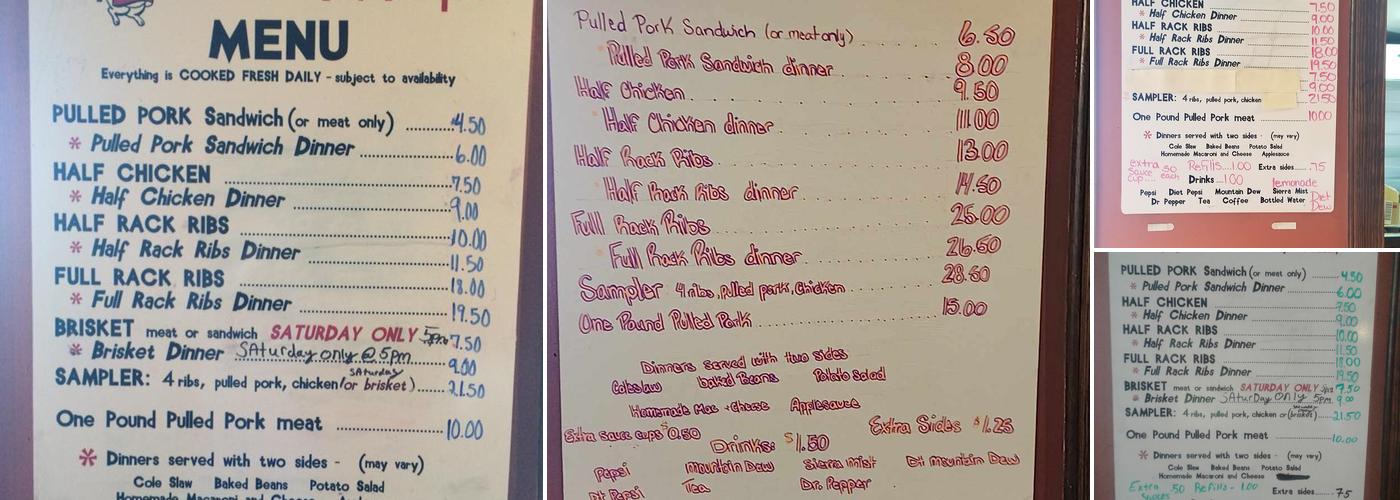 MENU
Everything is COOKED FRESH DAILY - subject to availability
PULLED PORK Sandwich (or meat only) ..........4.50
* Pulled Pork Sandwich Dinner ..........6.00
HALF CHICKEN ..........7.50
* Half Chicken Dinner ..........9.00
HALF RACK RIBS ..........10.00
* Half Rack Ribs Dinner ..........11.50
FULL RACK RIBS ..........18.00
* Full Rack Ribs Dinner ..........19.50
BRISKET meat or sandwich SATURDAY ONLY 5pm 7.50
* Brisket Dinner SAturday only @ 5pm 9.00
SAturday
SAMPLER: 4 ribs, pulled pork, chicken (or brisket) ......21.50
One Pound Pulled Pork meat ..........10.00
* Dinners served with two sides - (may vary)
Cole Slaw Baked Beans Potato Salad
Homemade Macaroni and Cheese Applesauce
Pulled Pork Sandwich (or meat only) .......... 6.50
Pulled Pork Sandwich dinner .......... 8.00
Half Chicken .......... 9.50
Half Chicken dinner .......... 11.00
Half Rack Ribs .......... 13.00
Half Rack Ribs dinner .......... 14.50
Full Rack Ribs .......... 25.00
Full Rack Ribs dinner .......... 26.50
Sampler 4 ribs, Pulled pork, Chicken .......... 28.50
One Pound Pulled Pork .......... 15.00
Dinners served with two sides
Coleslaw baked Beans Potato Salad
Homemade Mac + cheese Applesauce
Extra Sauce cups $0.50 Drinks: $1.50 Extra Sides $1.25
Pepsi mountain Dew Sierra mist Dt mountain Dew
Dt Pepsi Tea Dr. Pepper
HALF CHICKEN 7.50
* Half Chicken Dinner 9.00
HALF RACK RIBS 10.00
* Half Rack Ribs Dinner 11.50
FULL RACK RIBS 18.00
* Full Rack Ribs Dinner 19.50
7.50
9.00
SAMPLER: 4 ribs, pulled pork, chicken 21.50
One Pound Pulled Pork meat 10.00
* Dinners served with two sides - (may vary)
Cole Slaw Baked Beans Potato Salad
Homemade Macaroni and Cheese Applesauce
extra sauce cup... .50 each Refills...1.00 Extra sides.....75
Drinks...1.00 lemonade
Pepsi Diet Pepsi Mountain Dew Sierra Mist Diet
Dr Pepper Tea Coffee Bottled Water Dew
PULLED PORK Sandwich (or meat only) ........4.50
* Pulled Pork Sandwich Dinner ..........6.00
HALF CHICKEN ..........7.50
* Half Chicken Dinner ..........9.00
HALF RACK RIBS ..........10.00
* Half Rack Ribs Dinner ..........11.50
FULL RACK RIBS ..........18.00
* Full Rack Ribs Dinner ..........19.50
BRISKET meat or sandwich SATURDAY ONLY 5pm 7.50
* Brisket Dinner SAturDay Only 5pm 9.00
SAMPLER: 4 ribs, pulled pork, chicken or (brisket) ......21.50
One Pound Pulled Pork meat ..........10.00
* Dinners served with two sides - (may vary)
Cole Slaw Baked Beans Potato Salad
Homemade Macaroni and Cheese
Extra .50 Refills - 1.00 Extra sides.....75